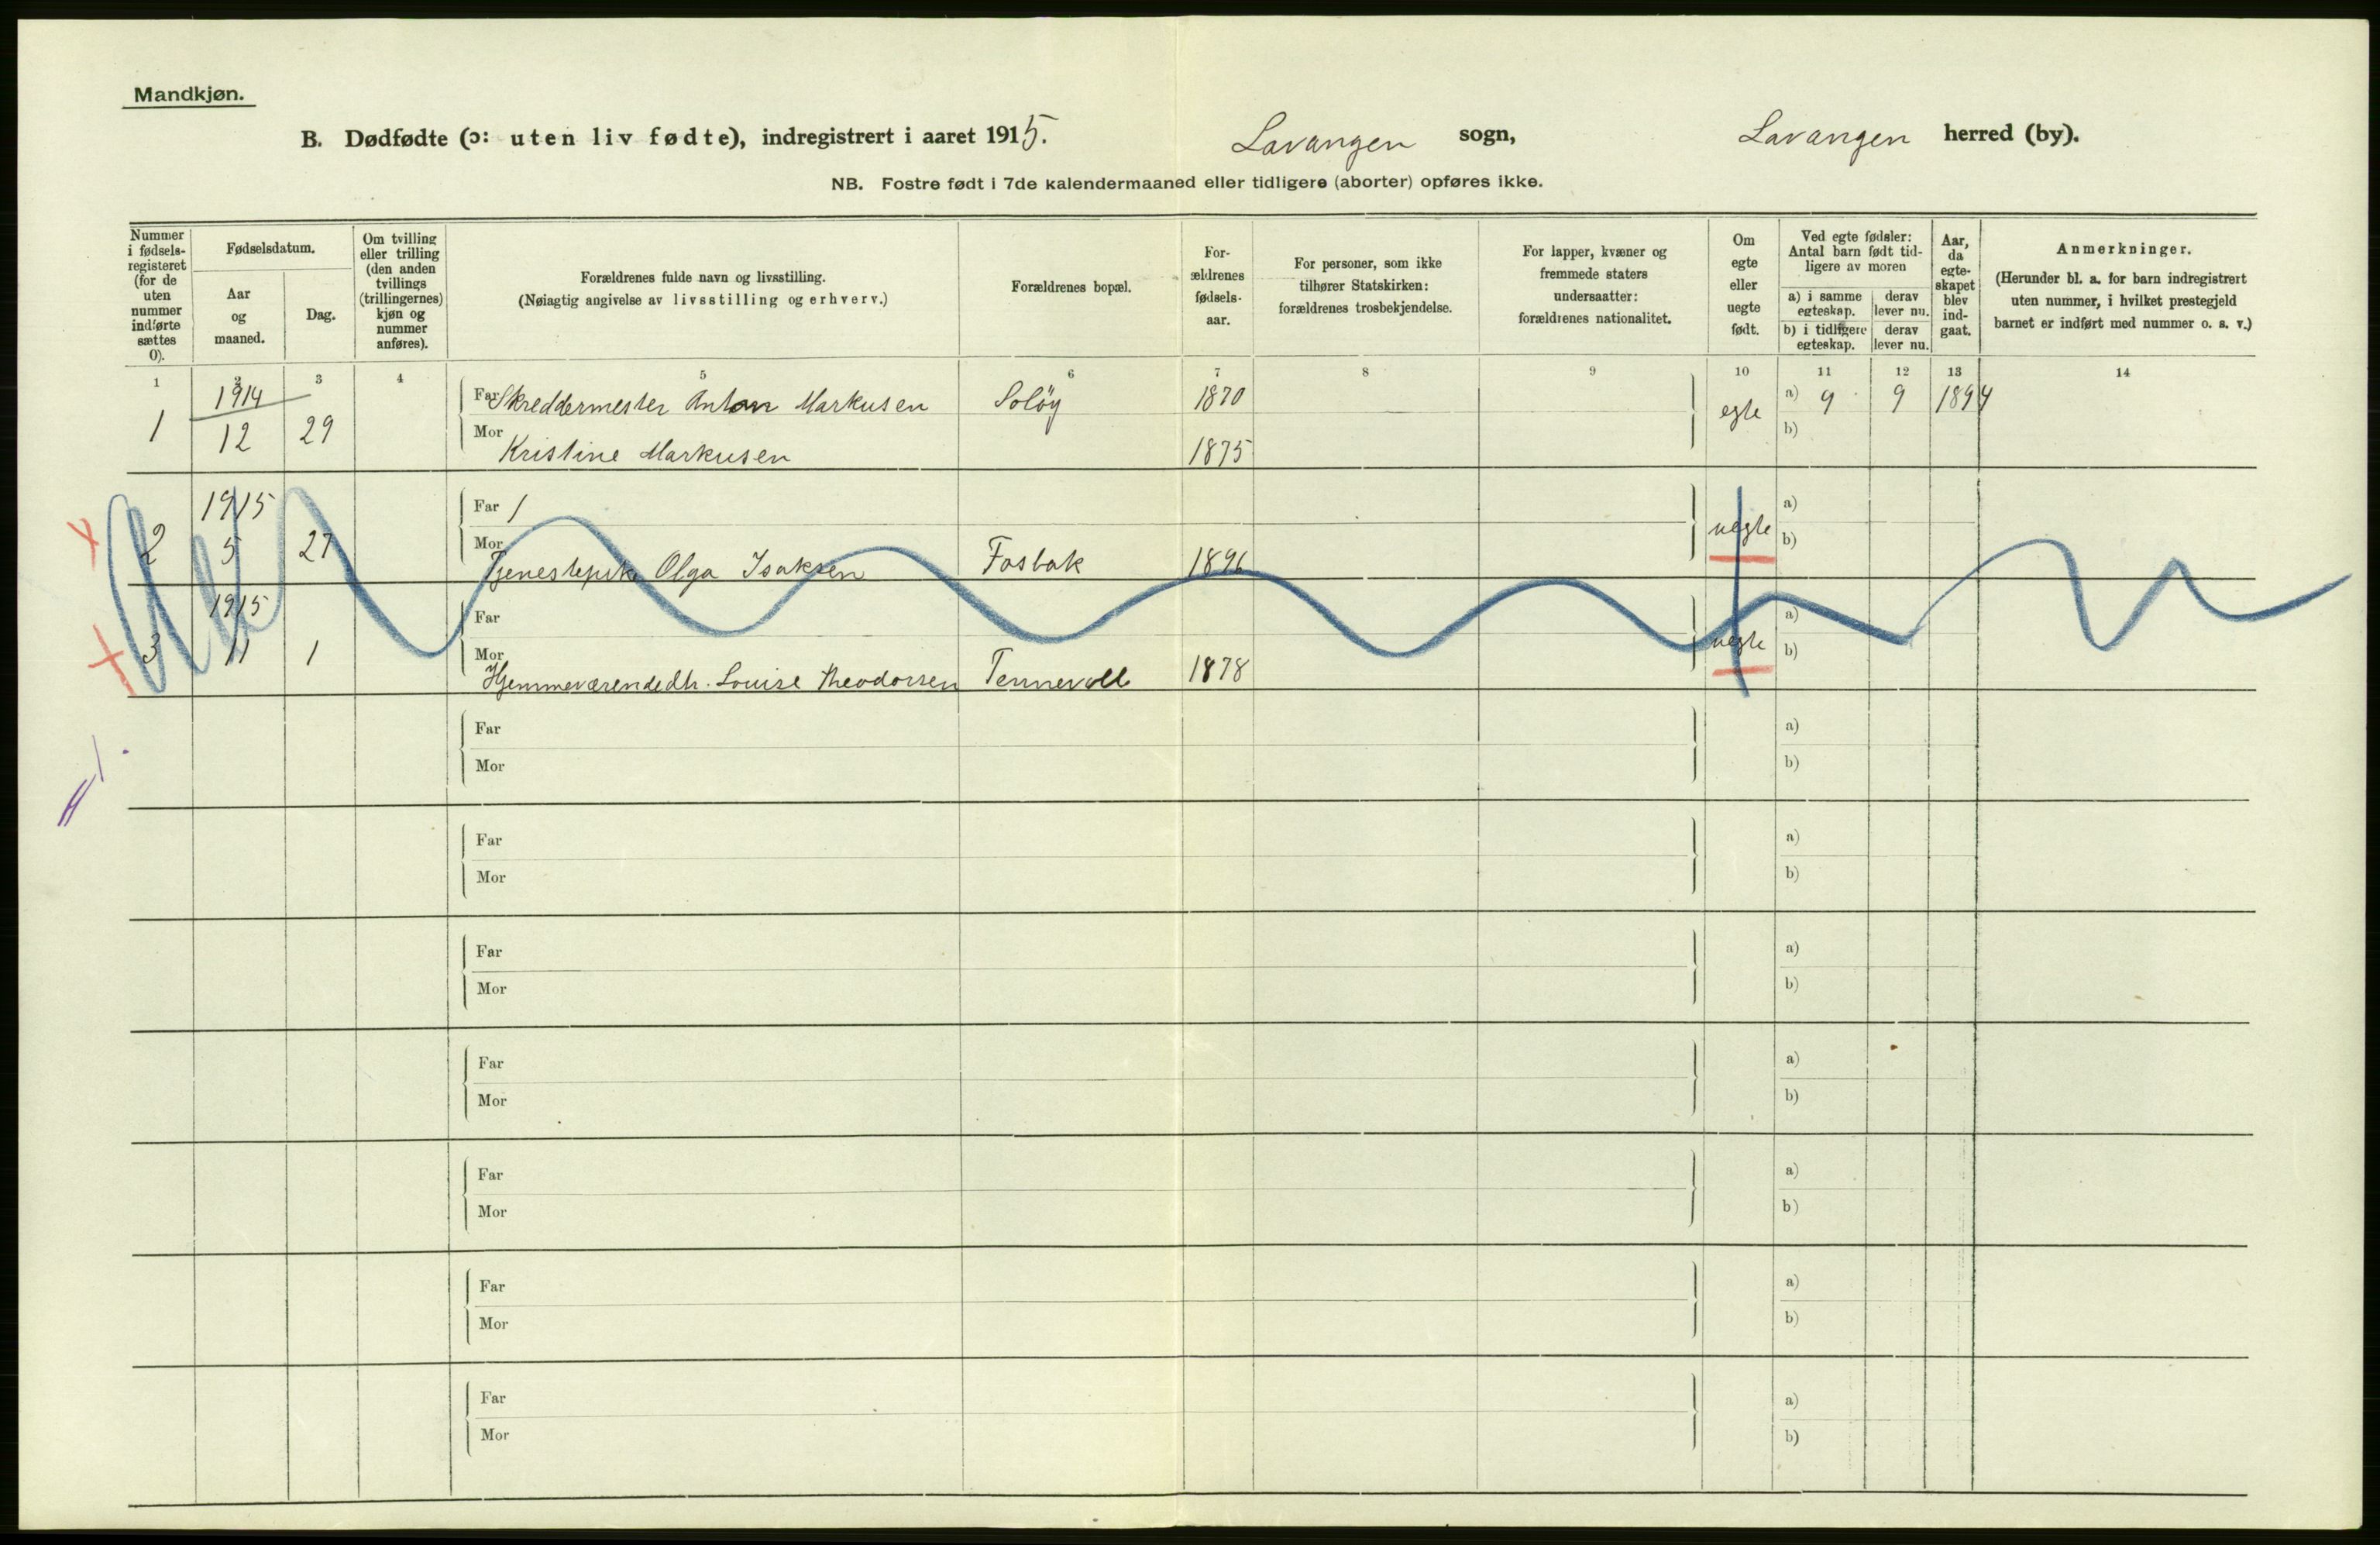 Mandkjøn.
B. Dødfødte (ɔ: uten liv fødte), indregistrert i aaret 1915. Lavangen sogn, Lavangen herred (by).
NB. Fostre født i 7de kalendermaaned eller tidligere (aborter) opføres ikke.
Nummer i fødsels-registeret (for de uten nummer indførte sættes 0).
Fødselsdatum.
Aar og maaned.
Dag.
Om tvilling eller trilling (den anden tvillings (trillingernes) kjøn og nummer anføres).
Forældrenes fulde navn og livsstilling.
(Nøiagtig angivelse av livsstilling og erhverv.)
Forældrenes bopæl.
For-ældrenes fødsels-aar.
For personer, som ikke tilhører Statskirken: forældrenes trosbekjendelse.
For lapper, kvæner og fremmede staters undersaatter: forældrenes nationalitet.
Om egte eller uegte født.
Ved egte fødsler: Antal barn født tid-ligere av moren
a) i samme egteskap. derav lever nu.
b) i tidligere egteskap. derav lever nu.
Aar, da egte-skapet blev ind-gaat.
Anmerkninger.
(Herunder bl. a. for barn indregistrert uten nummer, i hvilket prestegjeld barnet er indført med nummer o. s. v.)
1 2 3 4 5 6 7 8 9 10 11 12 13 14
1 1914 12 29 Far Skreddermester Anton Markusen Soløy 1870 egte a) 9 9 1894
Mor Kristine Markusen 1875 b)
2 1915 5 27 Far / uegte a)
Mor Tjenestepik Olga Isaksen Fosbak 1896 b)
3 1915 11 1 Far uegte a)
Mor Hjemmeværende dtr. Louise Theodorsen Tennevoll 1878 b)
Far a)
Mor b)
Far a)
Mor b)
Far a)
Mor b)
Far a)
Mor b)
Far a)
Mor b)
Far a)
Mor b)
Far a)
Mor b)